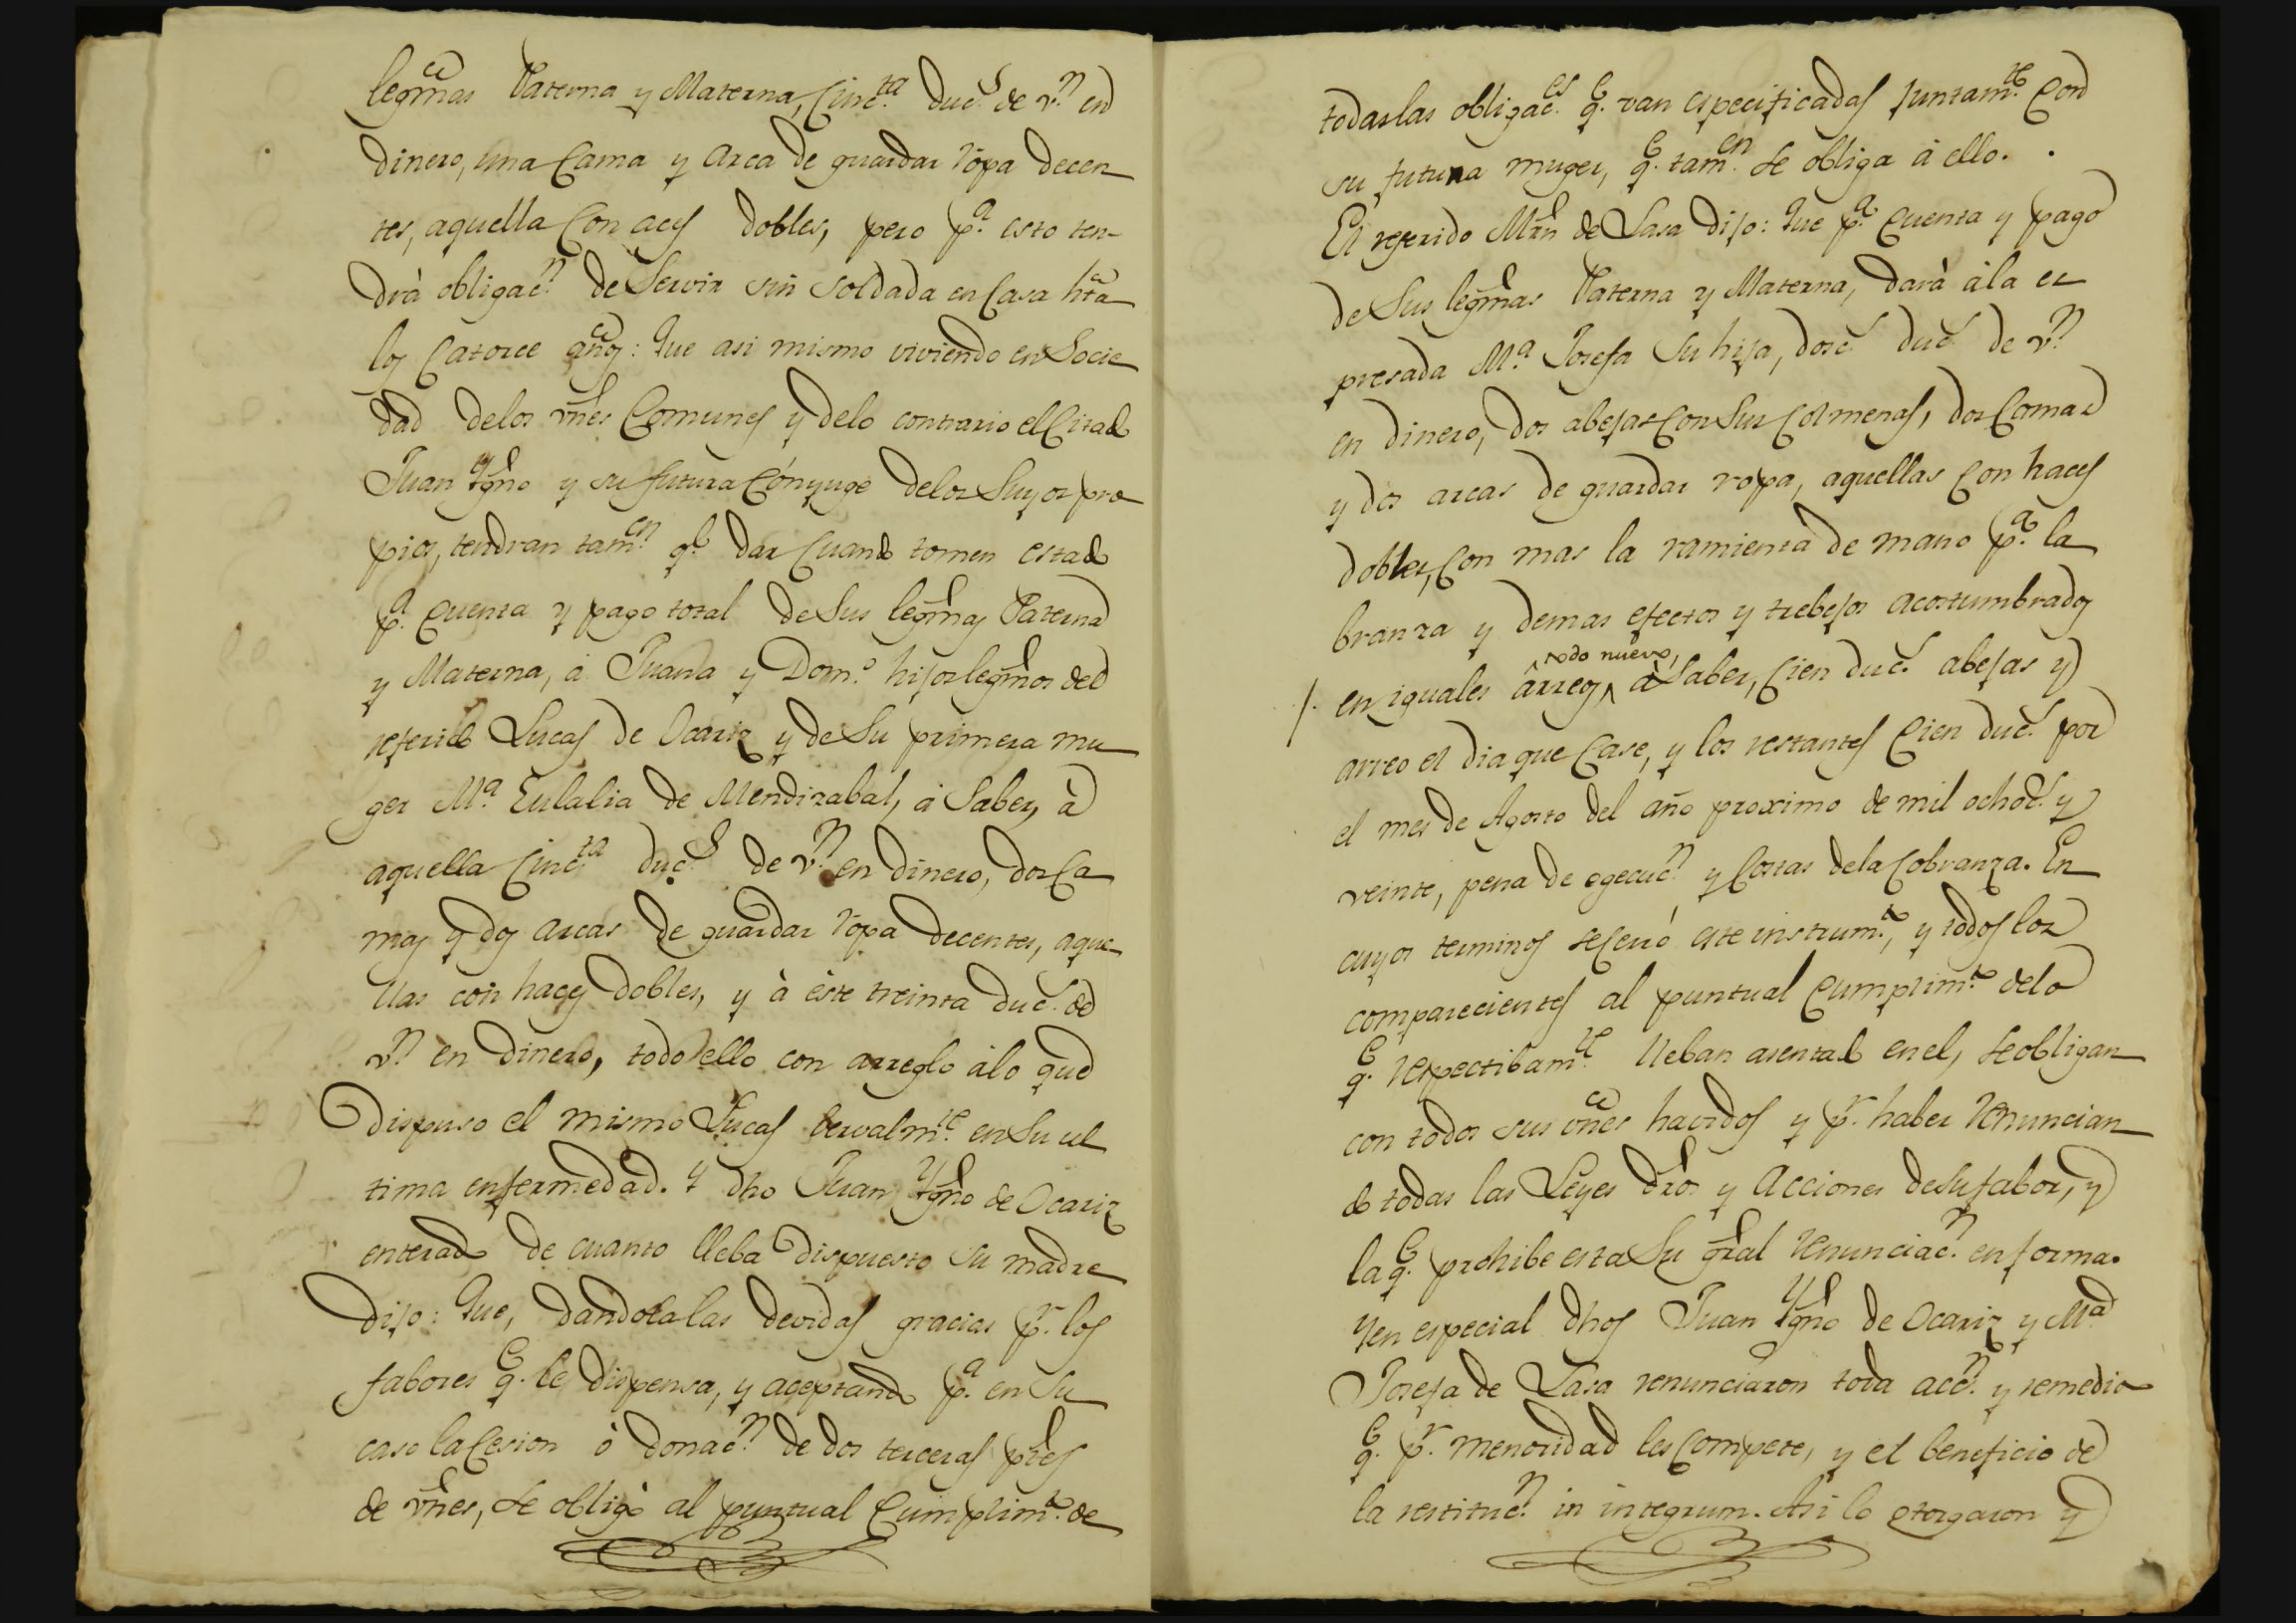 legmas Paterna y Materna, Cinc.ta duc.s de v.n en
dinero, una Cama y Arca de guardar ropa decen
tes, aquella con aces dobles, pero p.a esto ten-
drà obligac.n de Servir sin soldada en Casa hta
los Catorce años: Que asi mismo viviendo en Socie
dad delos vnes Comunes y delo contrario el Citado
Juan Ygno y su futura Cónyuge delos Suyos pro
pios, tendran tam.en q.e dar Cuando tomen estado
p.a Cuenta y pago total de Sus legmas Paterna
y Materna, á Juana y Dom.o hijos legmos del
referido Lucas de Ocariz y de Su primera mu
ger M.a Eulalia de Mendizabal, á Saber, à
aquella Cinc.ta duc.s de v.n en dinero, dos Ca
mas y dos arcas de guardar ropa decentes, aque
llas con haces dobles, y à éste treinta duc.s de
v.n en dinero, todo ello con arreglo àlo que
Dispuso el mismo Lucas bervalm.te en Su ul
tima enfermedad. Y dho Juan Ygno de Ocariz
enterado de cuanto lleba Dispuesto su madre
Dijo: Que, dandola las devidas gracias p.r los
fabores q.e le dispensa, y aceptando p.a en Su
caso la Cesion ò donac.n de dos terceras ptes
de vnes, se obligò al puntual Cumplim.to de
todas las obligac.es q.e van especificadas juntam.te Con
su futura muger, q.e tam.en se obliga á ello.
El referido Mrn de Lasa dijo: Que p.a Cuenta y pago
de Sus legmas Paterna y Materna, darà àla ex
presada M.a Josefa Su hija, dosc.s duc.s de v.n
en dinero, dos abejas Con Sus Colmenas, dos Camas
y dos arcas de guardar ropa, aquellas Con haces
dobles, Con mas la ramienta de mano p.a la
branza y demas efectos y trebejos acostumbrados
todo nuevo,
en iguales arreos, à Saber, Cien duc.s abejas y
arreo el dia que Case, y los restantes Cien duc.s por
el mes de Agosto del año proximo de mil ochoc.s y
veinte, pena de egecuc.n y Costas dela Cobranza. En
cuyos terminos se Cerró este instrum.to, y todos los
comparecientes al puntual Cumplim.to delo
q.e respectibam.te lleban asentado en el, se obligan
con todos sus vnes havidos y p.r haber renuncian
do todas las Leyes dros y Acciones de Su fabor, y
la q.e prohibe esta Su gral renunciac.n en forma.
Y en especial dhos Juan Ygno de Ocariz y M.a
Josefa de Lasa renunciaron toda acc.n y remedio
q.e p.r menoridad les Compete, y el beneficio de
la restituc.n in integrum. Asi lo otorgaron y